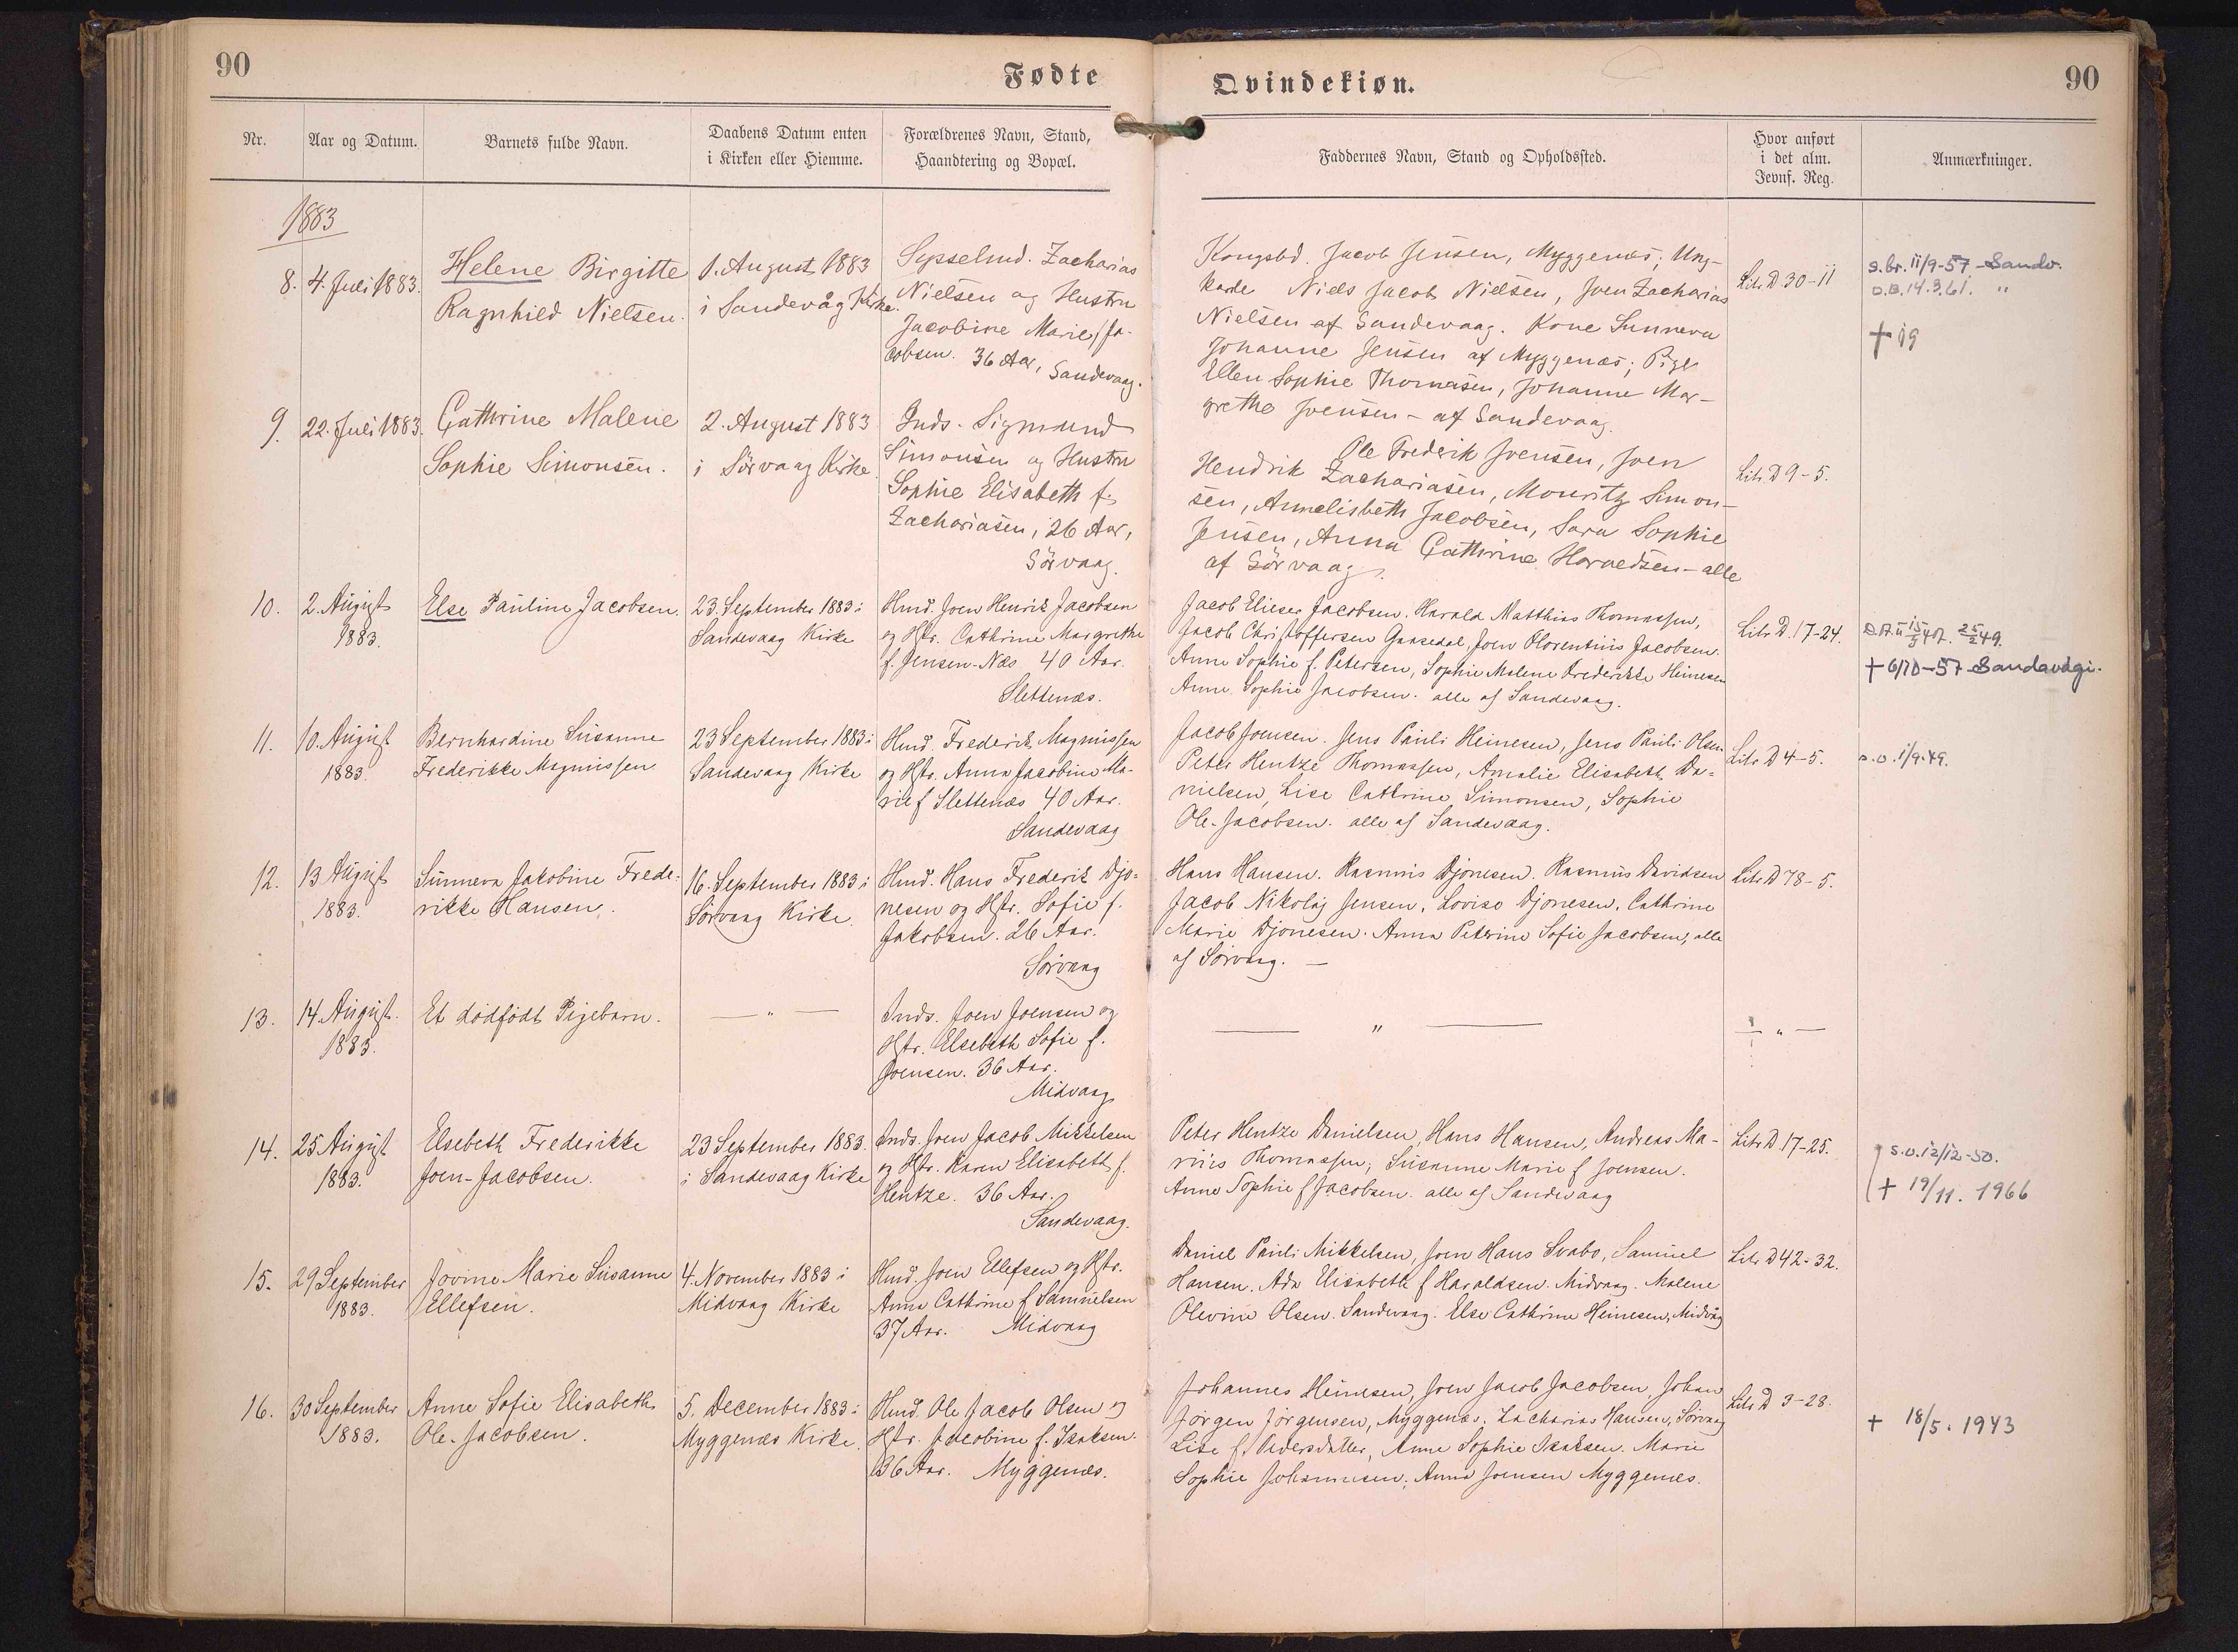 90
Fødte
Qvindekiøn.
90
Nr.
Aar og Datum.
Barnets fulde Navn.
Daabens Datum enten
i Kirken eller Hiemme.
Forældrenes Navn, Stand,
Haandtering og Bopæl.
Faddernes Navn, Stand og Opholdssted.
Hvor anført
i det alm.
Jevnf. Reg.
Anmærkninger.
1883
8.
4. Juli 1883.
Helene Birgitte
Ragnhild Nielsen.
1. August 1883
i Sandevåg Kirke.
Sysselmd. Zacharias
Nielsen og Hustru
Jacobine Marie f. Ja-
cobsen. 36 Aar,
Sandevaag.
Kongsbd. Jacob Jensen, Myggenæs; Ung-
karle Niels Jacob Nielsen, Joen Zacharias
Nielsen af Sandevaag. Kone Sunneva
Johanne Jensen af Myggenæs; Pige
Ellen Sophie Thomasen, Johanne Mar-
grethe Joensen - af Sandevaag.
Litr. D 30-11
s.br. 11/9-57 - Sandv.
D.B. 14.3.61. "
† 19
9.
22. Juli 1883.
Cathrine Malene
Sophie Simonsen.
2. August 1883
i Sörvaag Kirke.
Inds. Sigmund
Simonsen og Hustru
Sophie Elisabeth f.
Zachariasen, 26 Aar,
Sörvaag.
Ole Frederik Joensen, Joen
Hendrik Zachariasen, Mouritz Simon-
sen, Annelisbeth Jacobsen, Sara Sophie
Jensen, Anna Cathrine Haraldsen - alle
af Sörvaag.
Litr. D 9-5.
10.
2. August
1883.
Else Pauline Jacobsen.
23. September 1883 i
Sandevaag Kirke
Hmd. Joen Henrik Jacobsen
og Hstr. Cathrine Margrethe
f. Jensen-Næs 40 Aar.
Slettenæs.
Jacob Elieser Jacobsen. Harald Matthias Thomassen,
Jacob Christoffersen Gaasedal, Joen Florentinus Jacobsen.
Anne Sophie f. Petersen, Sophie Malene Frederikke Heinesen
Anne Sophie Jacobsen. alle af Sandevaag.
Litr D. 17-24.
25/2 49.
† 6/10-57 Sandavági.
11.
10. August
1883.
Bernhardine Susanne
Frederikke Magnussen
23 September 1883 i
Sandevaag Kirke
Hmd. Frederik Magnussen
og Hstr. Anna Jacobine Ma-
rie f Slettenæs 40 Aar.
Sandevaag
Jacob Joensen. Jens Pauli Heinesen, Jens Pauli Olsen
Peter Hentze Thomassen, Amalie Elisabeth Da-
nielsen, Lise Cathrine Simonsen, Sophie
Ole-Jacobsen. alle af Sandevaag.
Litr. D 4-5.
s.v. 1/9.49.
12.
13 August
1883.
Sunneva Jakobine Frede-
rikke Hansen.
16. September 1883 i
Sörvaag Kirke.
Hmd. Hans Frederik Djo-
nesen og Hstr. Sofie f.
Jakobsen. 26 Aar.
Sörvaag
Hans Hansen. Rasmus Djonesen. Rasmus Davidsen
Jacob Nikolaj Jensen. Lovise Djonesen. Cathrine
Marie Djonesen. Anna Peterine Sofie Jacobsen, alle
af Sörvaag. —
Litr. D 78-5.
13.
14. August.
1883.
Et dödfödt Pigebarn.
— " —
Inds. Joen Joensen og
Hstr. Elsebeth Sofie f.
Joensen. 36 Aar.
Midvaag
— " —
— " —
14.
25 August
1883.
Elsebeth Frederikke
Joen-Jacobsen.
23 September 1883.
i Sandevaag Kirke
Inds. Joen Jacob Mikkelsen
og Hstr. Karen Elisabeth f.
Hentze. 36 Aar.
Sandevaag.
Peter Hentze Danielsen, Hans Hansen, Andreas Ma-
rius Thomassen, Susanne Marie f Joensen.
Anne Sophie f Jacobsen. alle af Sandevaag
Litr D 17-25.
s.v. 12/12-50.
† 19/11. 1966
15.
29 September
1883.
Jovine Marie Susanne
Ellefsen.
4. November 1883 i
Midvaag Kirke
Hmd. Joen Ellefsen og Hstr.
Anna Cathrine f Samuelsen
37 Aar. Midvaag
Daniel Pauli Mikkelsen, Joen Hans Svabo, Samuel
Hansen. Ada Elisabeth f Haraldsen. Midvaag. Malene
Olevine Olsen. Sandevaag. Else Cathrine Heinesen, Midvåg
Litr. D 42-32.
16.
30 September
1883.
Anne Sofie Elisabeth
Ole-Jacobsen.
5. December 1883 i
Myggenæs Kirke.
Hmd. Ole Jacob Olsen og
Hstr. Jacobine f. Isaksen.
36 Aar. Myggenæs.
Johannes Heinesen, Joen Jacob Jacobsen, Johan
Jörgen Jörgensen, Myggenæs. Zacharias Hansen, Sörvaag
Lise f. Pedersdatter, Anne Sophie Isaksen. Marie
Sophie Johannesen; Anna Joensen Myggenæs.
Litr D 3-28.
† 18/5. 1943